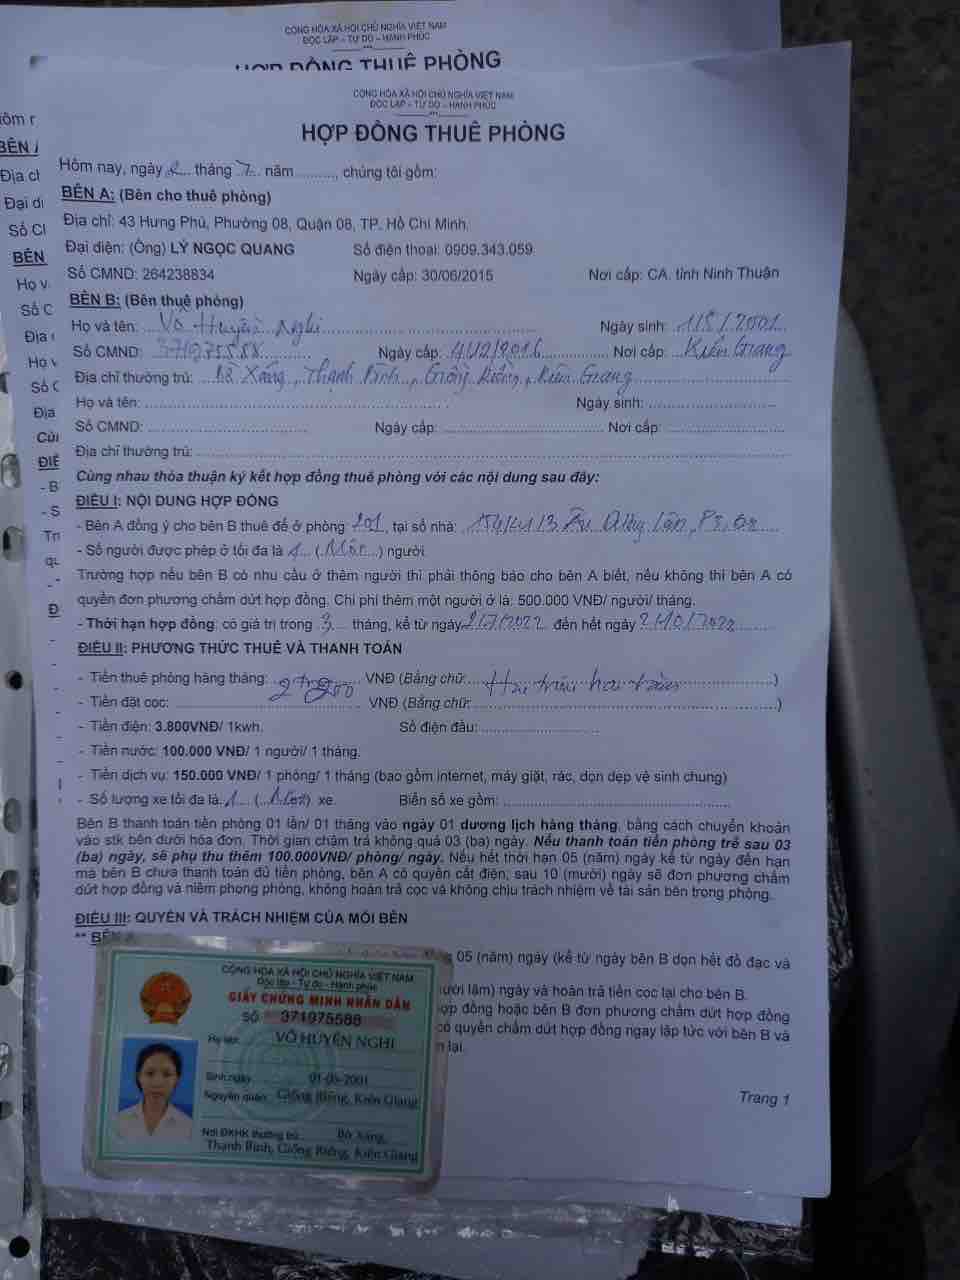 CỘNG HÒA XÃ HỘI CHỦ NGHĨA VIỆT NAM
ĐỘC LẬP – TỰ DO – HẠNH PHÚC
HỢP ĐỒNG THUÊ PHÒNG
CỘNG HÒA XÃ HỘI CHỦ NGHĨA VIỆT NAM
ĐỘC LẬP – TỰ DO – HẠNH PHÚC
HỢP ĐỒNG THUÊ PHÒNG
Hôm nay, ngày 2 tháng 7 năm ........., chúng tôi gồm:
BÊN A: (Bên cho thuê phòng)
Địa chỉ: 43 Hưng Phú, Phường 08, Quận 08, TP. Hồ Chí Minh.
Đại diện: (Ông) LÝ NGỌC QUANG Số điện thoại: 0909.343.059
Số CMND: 264238834 Ngày cấp: 30/06/2015 Nơi cấp: CA. tỉnh Ninh Thuận
BÊN B: (Bên thuê phòng)
Họ và tên: Võ Huyền Nghi Ngày sinh: 1/5/2001
Số CMND: Ngày cấp: Nơi cấp: Kiên Giang
Địa chỉ thường trú: Bờ Xáng, Thạnh Bình, Giồng Riềng, Kiên Giang
Họ và tên: Ngày sinh:
Số CMND: Ngày cấp: Nơi cấp:
Địa chỉ thường trú:
Cùng nhau thỏa thuận ký kết hợp đồng thuê phòng với các nội dung sau đây:
ĐIỀU I: NỘI DUNG HỢP ĐỒNG
- Bên A đồng ý cho bên B thuê để ở phòng: 201 tại số nhà:
- Số người được phép ở tối đa là 1 (Một) người.
Trường hợp nếu bên B có nhu cầu ở thêm người thì phải thông báo cho bên A biết, nếu không thì bên A có
quyền đơn phương chấm dứt hợp đồng. Chi phí thêm một người ở là: 500.000 VNĐ/ người/ tháng.
- Thời hạn hợp đồng: có giá trị trong 3 tháng, kể từ ngày 2/7/2022 đến hết ngày 2/10/2022
ĐIỀU II: PHƯƠNG THỨC THUÊ VÀ THANH TOÁN
- Tiền thuê phòng hàng tháng: VNĐ (Bằng chữ: Hai triệu hai trăm)
- Tiền đặt cọc: VNĐ (Bằng chữ: )
- Tiền điện: 3.800VNĐ/ 1kwh. Số điện đầu:
- Tiền nước: 100.000 VNĐ/ 1 người/ 1 tháng.
- Tiền dịch vụ: 150.000 VNĐ/ 1 phòng/ 1 tháng (bao gồm internet, máy giặt, rác, dọn dẹp vệ sinh chung)
- Số lượng xe tối đa là: 1 (Một) xe. Biển số xe gồm:
Bên B thanh toán tiền phòng 01 lần/ 01 tháng vào ngày 01 dương lịch hàng tháng, bằng cách chuyển khoản
vào stk bên dưới hóa đơn. Thời gian chậm trả không quá 03 (ba) ngày. Nếu thanh toán tiền phòng trễ sau 03
(ba) ngày, sẽ phụ thu thêm 100.000VNĐ/ phòng/ ngày. Nếu hết thời hạn 05 (năm) ngày kể từ ngày đến hạn
mà bên B chưa thanh toán đủ tiền phòng, bên A có quyền cắt điện, sau 10 (mười) ngày sẽ đơn phương chấm
dứt hợp đồng và niêm phong phòng, không hoàn trả cọc và không chịu trách nhiệm về tài sản bên trong phòng.
ĐIỀU III: QUYỀN VÀ TRÁCH NHIỆM CỦA MỖI BÊN
** BÊN A
05 (năm) ngày (kể từ ngày bên B dọn hết đồ đạc và
lăm) ngày và hoàn trả tiền cọc lại cho bên B.
hợp đồng hoặc bên B đơn phương chấm dứt hợp đồng
có quyền chấm dứt hợp đồng ngay lập tức với bên B và
lại.
Trang 1
CỘNG HÒA XÃ HỘI CHỦ NGHĨA VIỆT NAM
Độc lập - Tự do - Hạnh phúc
GIẤY CHỨNG MINH NHÂN DÂN
SỐ 371975588
Họ tên: VÕ HUYỀN NGHI
Sinh ngày 01-05-2001
Nguyên quán Giồng Riềng, Kiên Giang
Nơi ĐKHK thường trú Bờ Xáng,
Thạnh Bình, Giồng Riềng, Kiên Giang